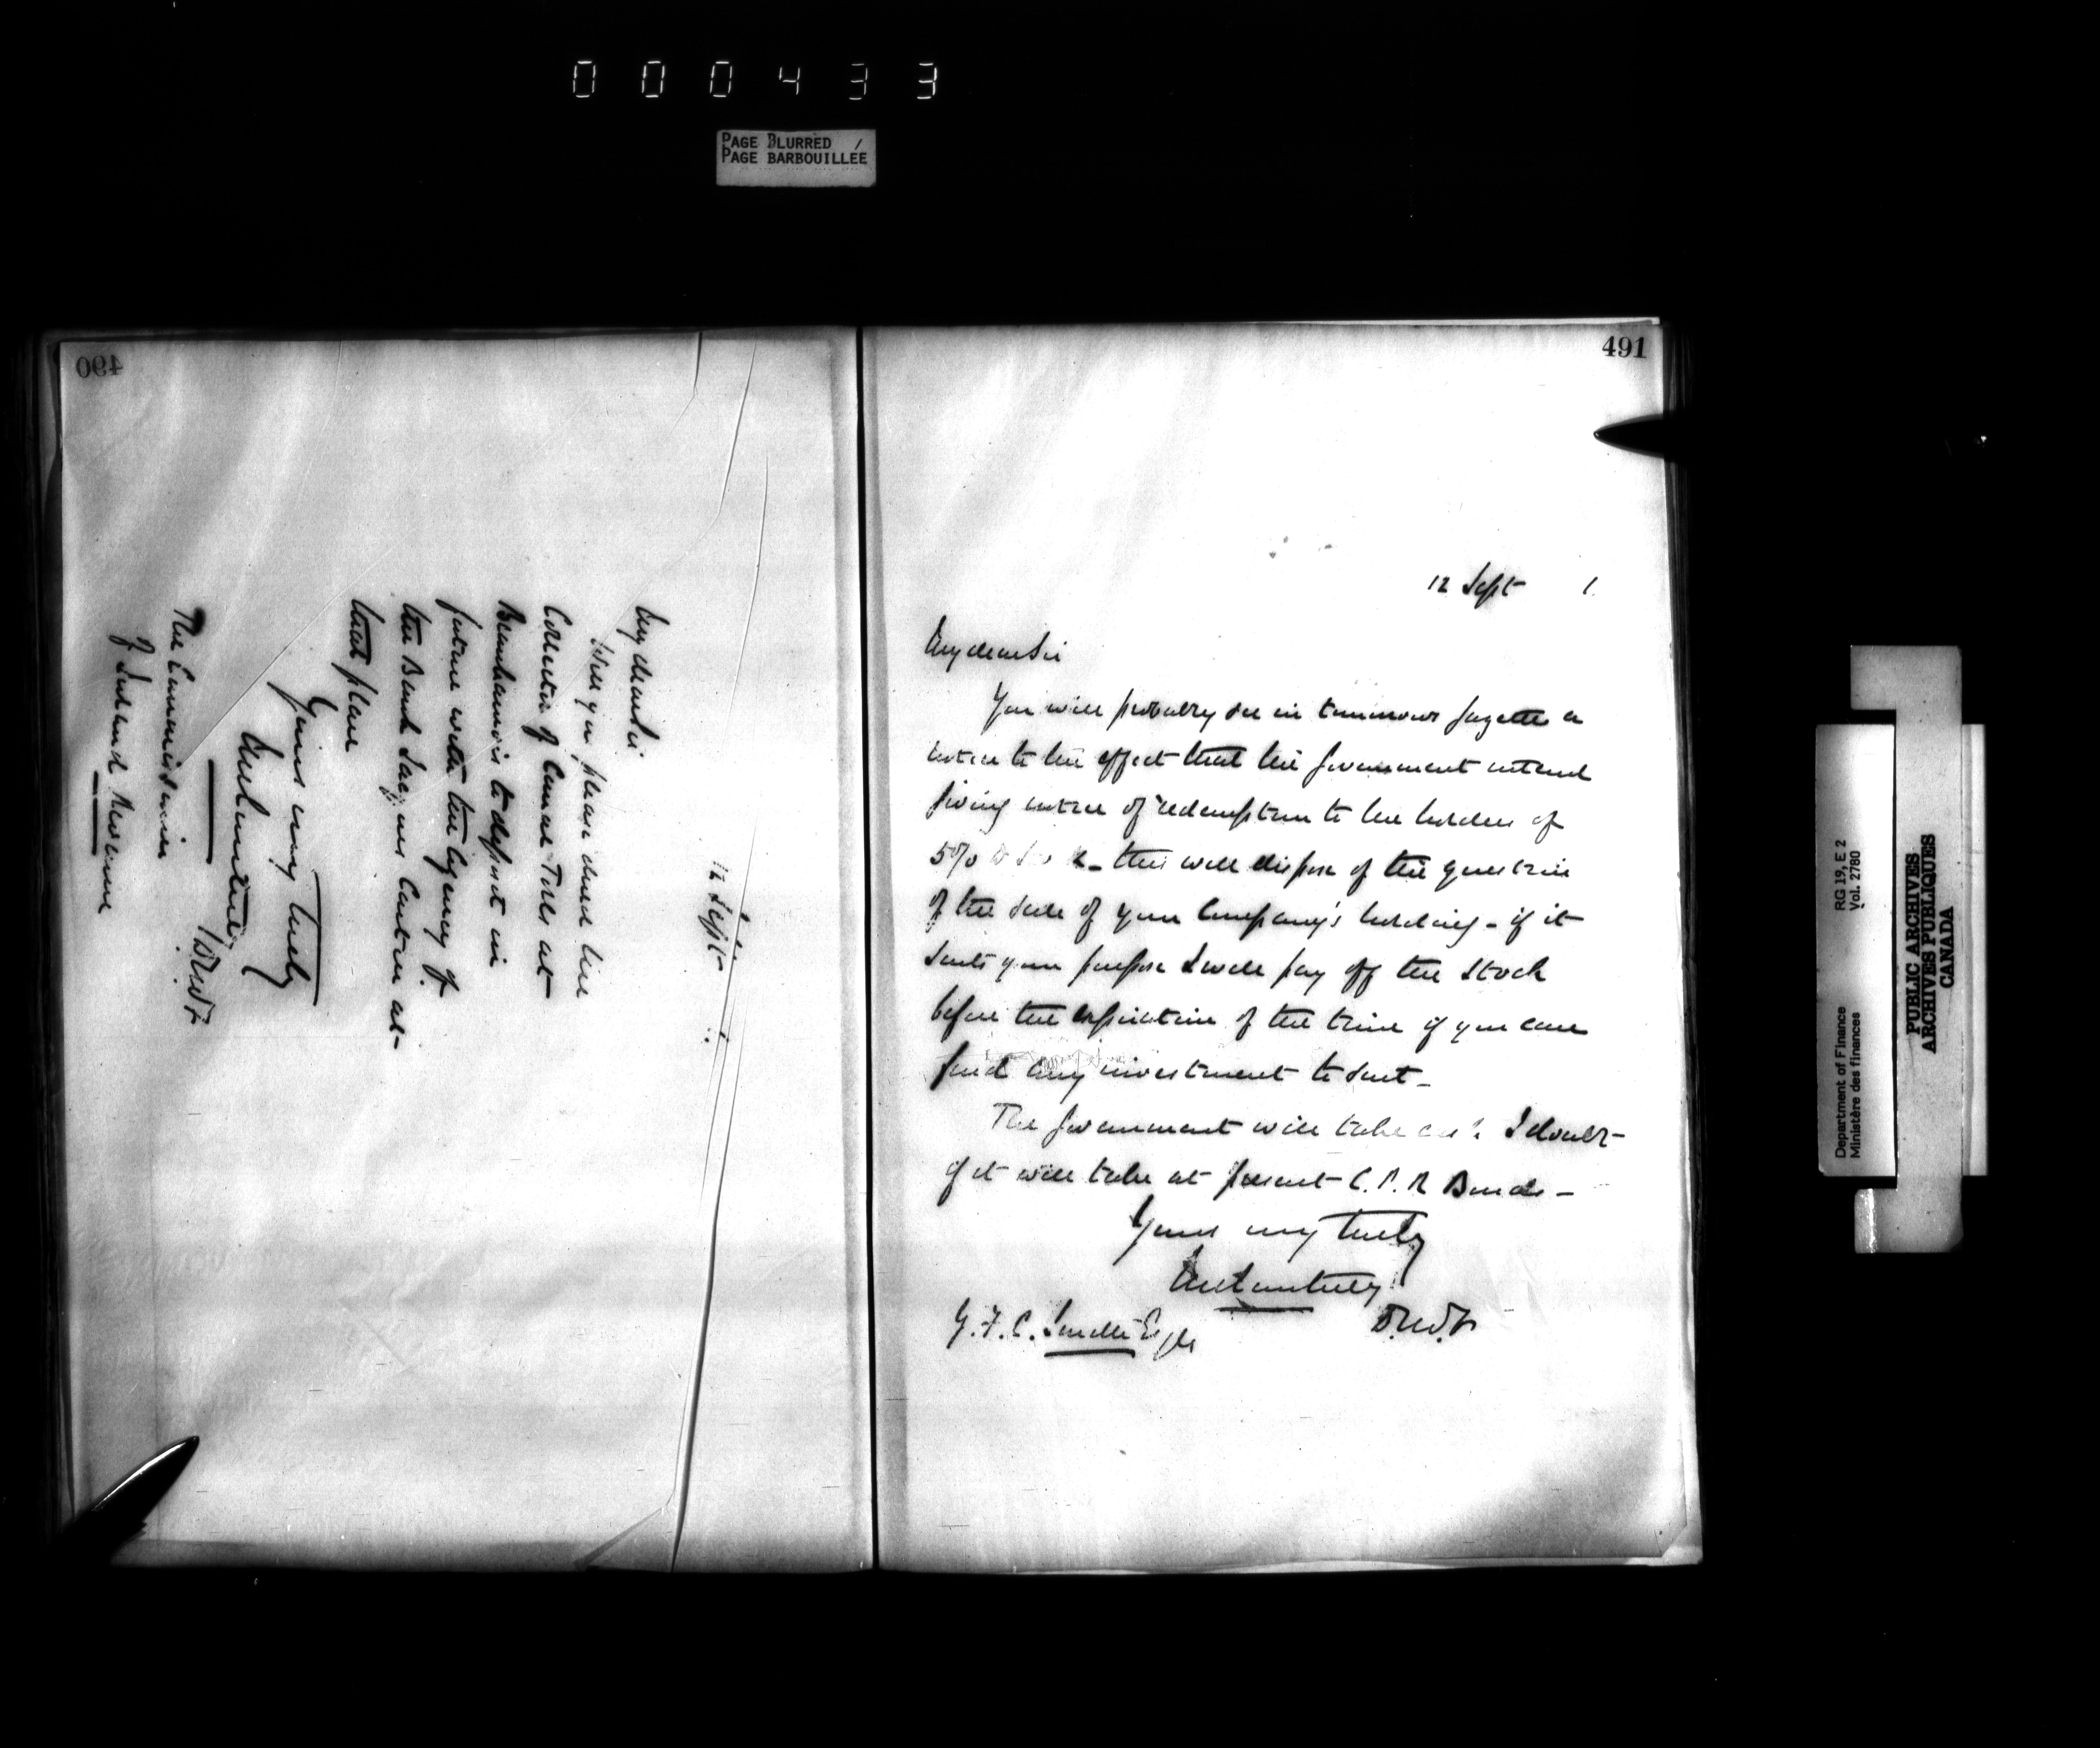 000433
PAGE BLURRED /
PAGE BARBOUILLÉE
490
12 Sept
My dear Sir
Will you please direct the
Collector of Canal Tolls at
Beauharnois to deposit in
future with the Agency of
the Bank Jacques Cartier at
that place
Yours very truly
DMDF
The Commissioner
of Inland Revenue
491
12 Sept 1
My dear Sir
You will probably see in tomorrows Gazette a
notice to the effect that the Government intend
giving notice of redemption to the holders of
5% - this will dispose of the question
of the sale of your Company's holding - if it
suits your purpose I will pay off the stock
before the expiration of the time if you can
find any investment to suit -
The Government will take cash I doubt
if it will take at present C.P.R Bonds -
Yours very truly
G. F. C. Smith Esqre
Department of Finance RG 19, E 2
Ministère des finances Vol. 2780
PUBLIC ARCHIVES
ARCHIVES PUBLIQUES
CANADA